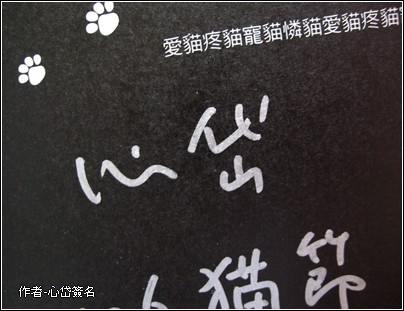 愛貓疼貓寵貓憐貓愛貓疼貓
心岱
貓節
作者-心岱簽名